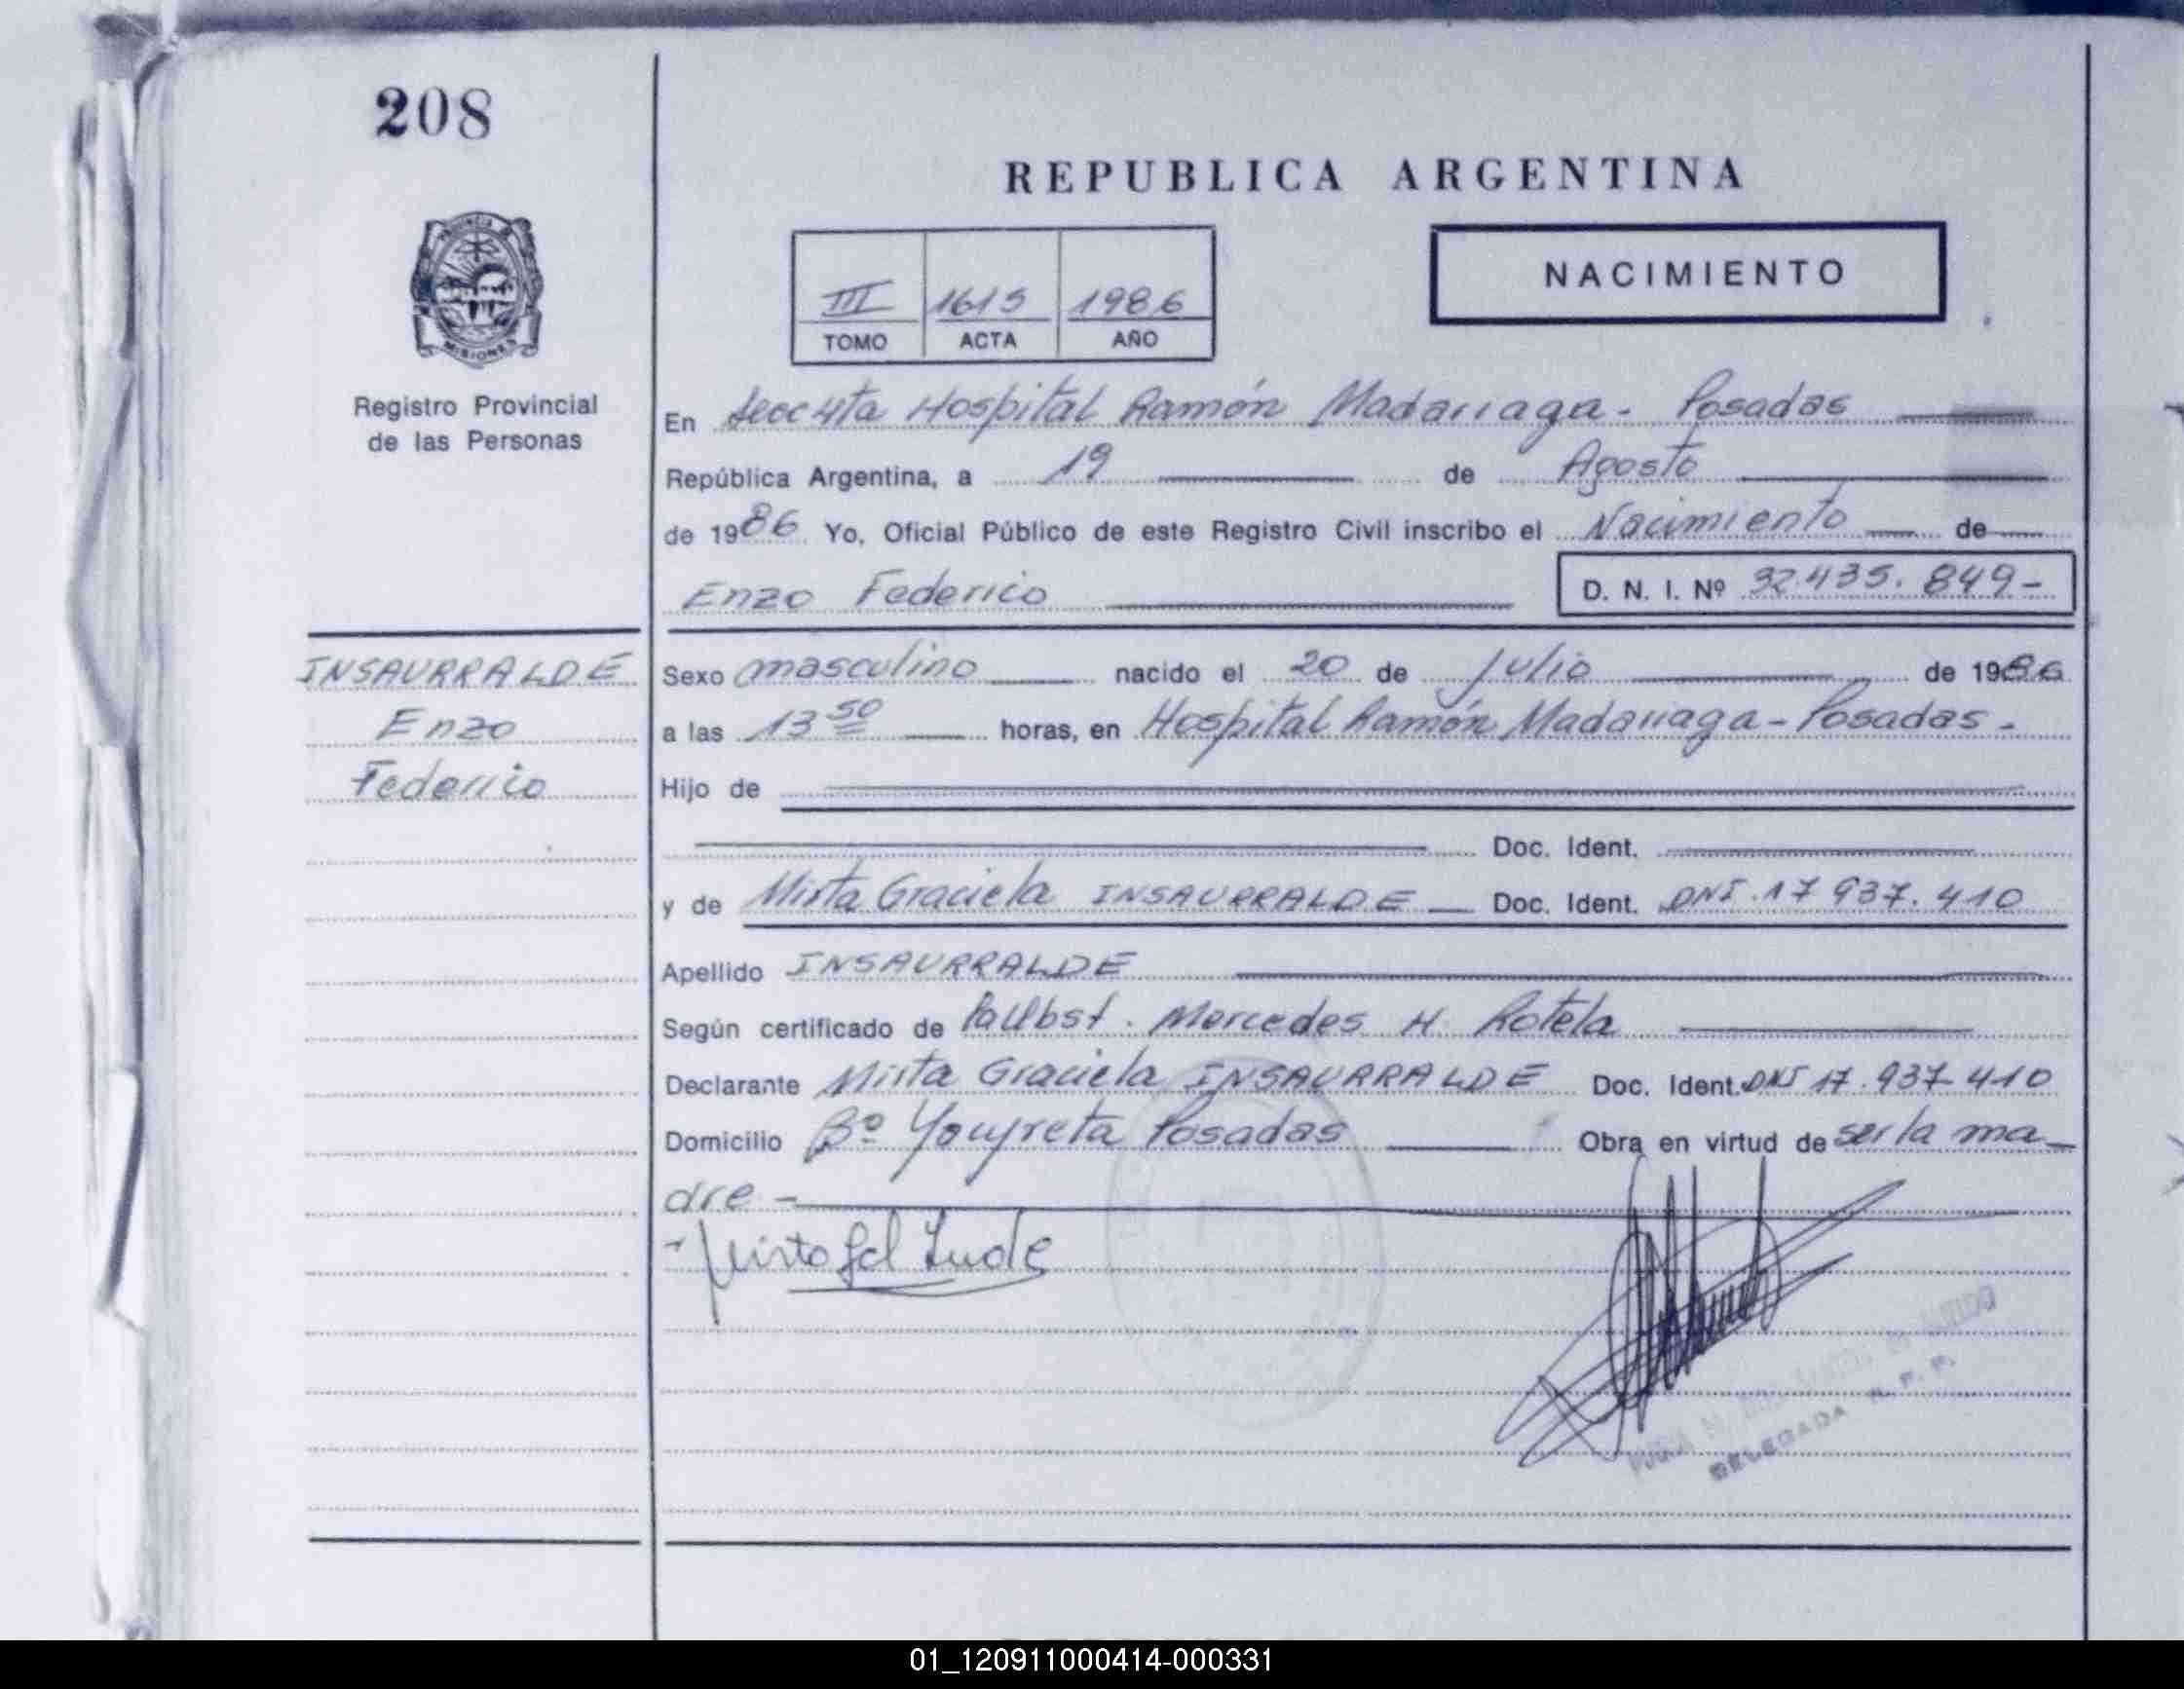 208
REPUBLICA ARGENTINA
NACIMIENTO
III 1615 1986
TOMO ACTA AÑO
PROVINCIA DE
MISIONES
Registro Provincial
de las Personas
En Secc 4ta Hospital Ramón Madariaga - Posadas
República Argentina, a 19 de Agosto
de 1986 Yo, Oficial Público de este Registro Civil inscribo el Nacimiento de
Enzo Federico D. N. I. Nº 32.435.849-
INSAURRALDE
Enzo
Federico
Sexo masculino nacido el 20 de Julio de 1986
a las 13 50 horas, en Hospital Ramón Madariaga - Posadas -
Hijo de
Doc. Ident.
y de Mirta Graciela INSAURRALDE Doc. Ident. DNI. 17 937.410
Apellido INSAURRALDE
Según certificado de Mercedes H Rotela
Declarante Mirta Graciela INSAURRALDE Doc. Ident. DNI 17.937 410
Domicilio Bº Yacyreta Posadas Obra en virtud de ser la ma
dre -
DELEGADA R. P. P.
01_120911000414-000331